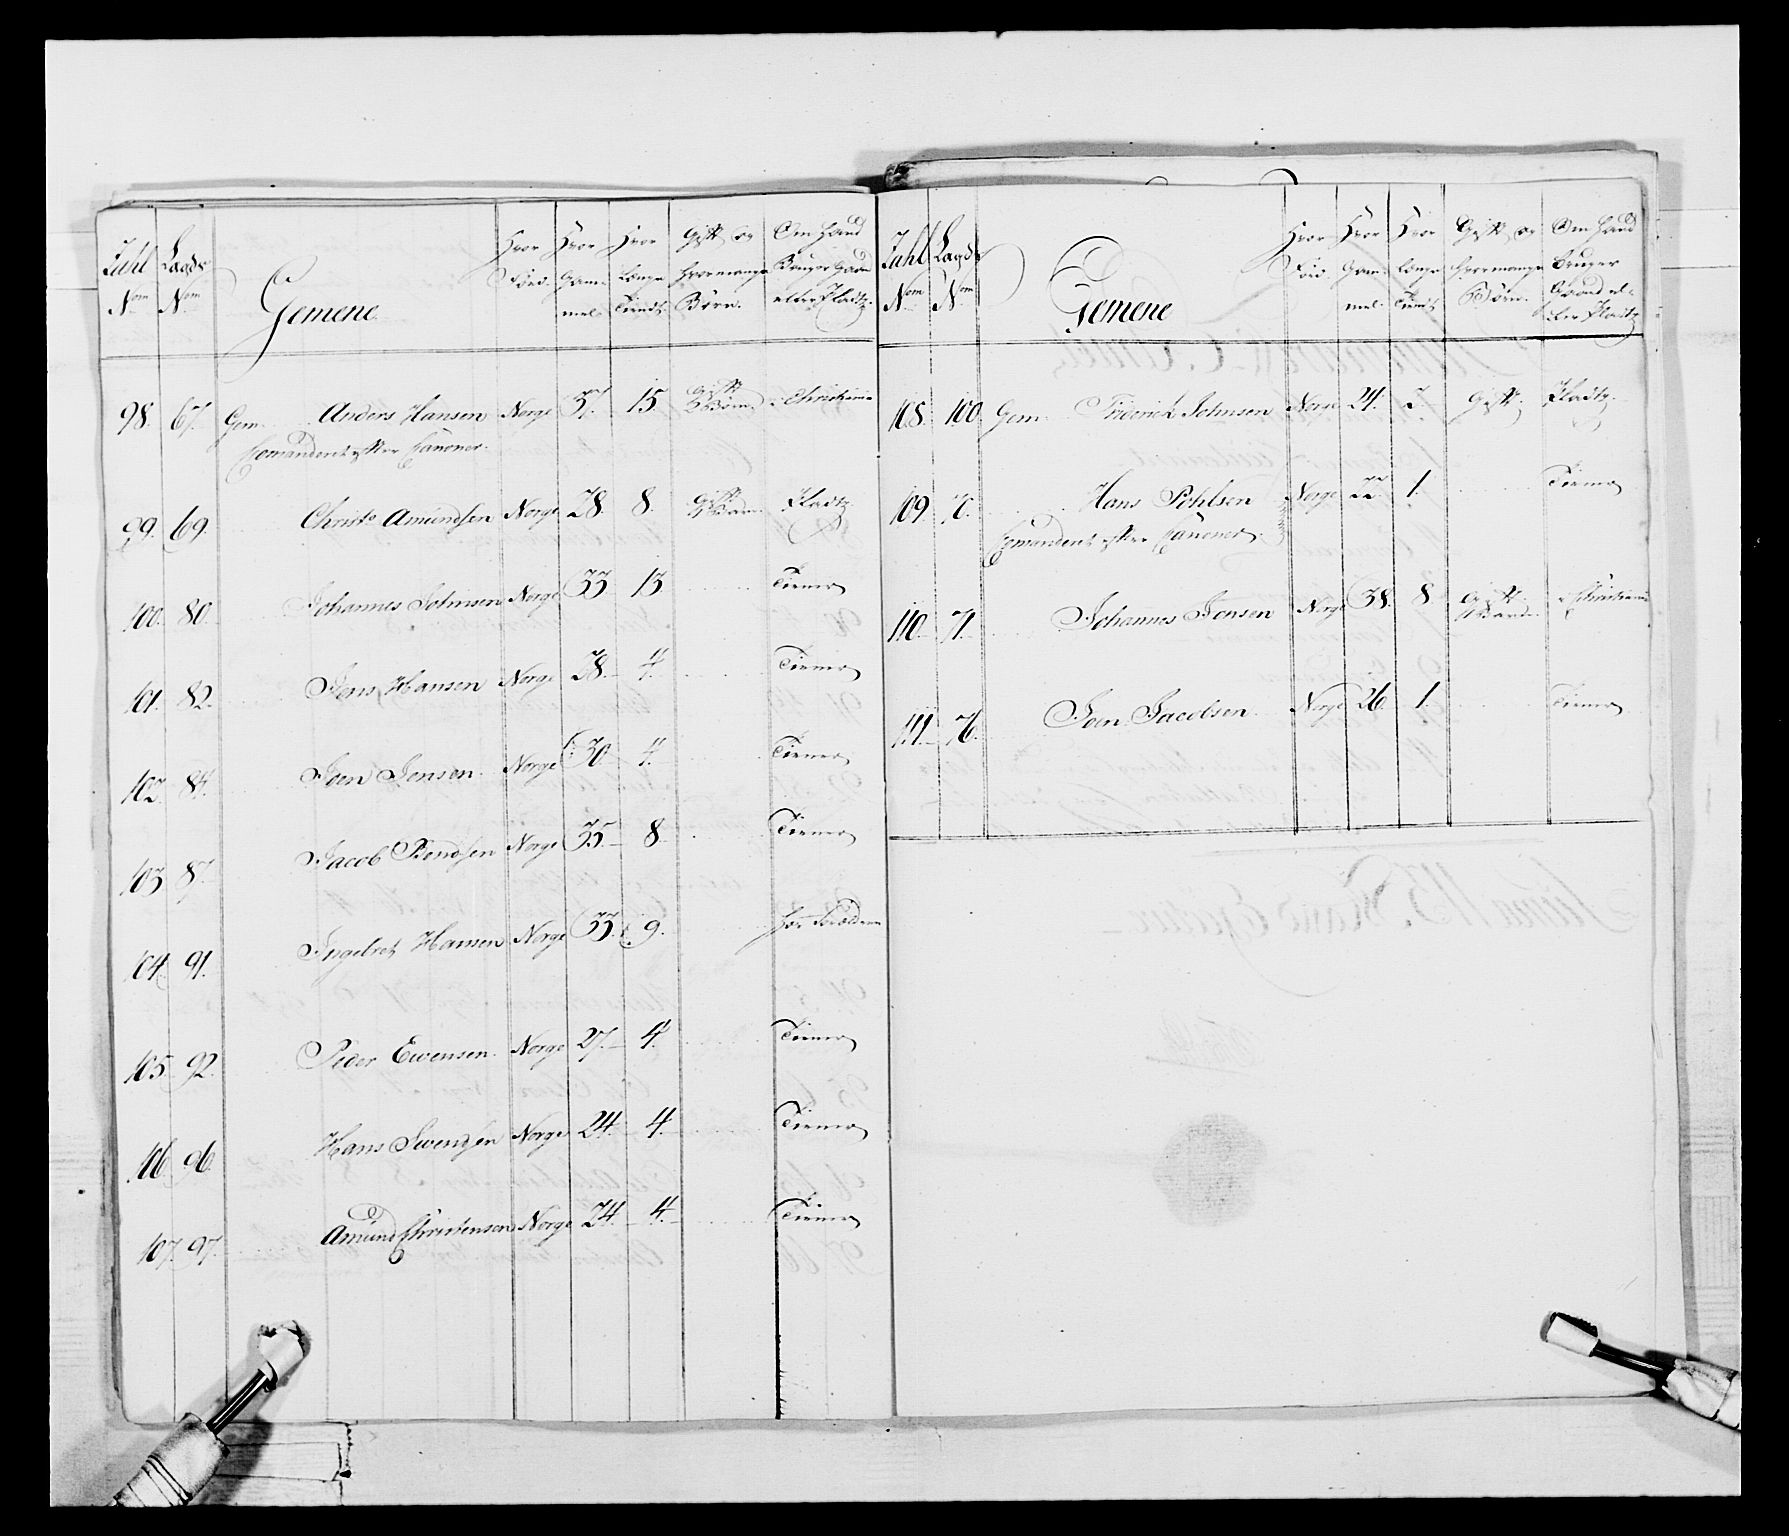 Tahl Nom Lagds Nom Gemene Hvor Föed. Hvor Gam- mel. Hvor Længe Tient Gift og Hvormange Börn. Om Hand Bruger Gaard eller Pladtz.
98. 67. Gem. Anders Hansen Norge 37. 15. Gift Börn Christiania
Comanderet efter Canoner.
99. 69. Christo Amundsen Norge 28. 8. Gift 1 Barn Pladtz.
100. 80. Johannes Johnsen Norge 33 13 Tiener
101. 82. Jens Hansen Norge 28. 4. Tiener
102. 84. Joen Jensen. Norge 30 4. Tiener
103 87. Jacob Bendsen Norge 35. 8 Tiener
104. 91. Ingebret Hansen Norge 33. 9. hos Forældrene
105. 92. Peder Ewensen. Norge 27. 4. Tiener
106. 96. Hans Svendsen Norge 24. 4. Tiener
107. 97. Amund Christensen Norge 24. 4. Tiener
Tahl Nom Lagds Nom Gemene Hvor Föed. Hvor Gam- mel. Hvor Længe Tient Gift og Hvormange Börn. Om Hand Bruger Gaard el- ler Pladtz
108. 100. Gem. Friderick Johnsen Norge 24. 2. Gift Pladtz.
109. 7. Hans Pohlsen Norge 22. 1. Tiener
Comanderet efter Canoner.
110. 71. Johannes Jensen Norge 38. 8. Gift 1 Barn Christiania
111. 76. Joen Jacobsen Norge 26 1. Tiener